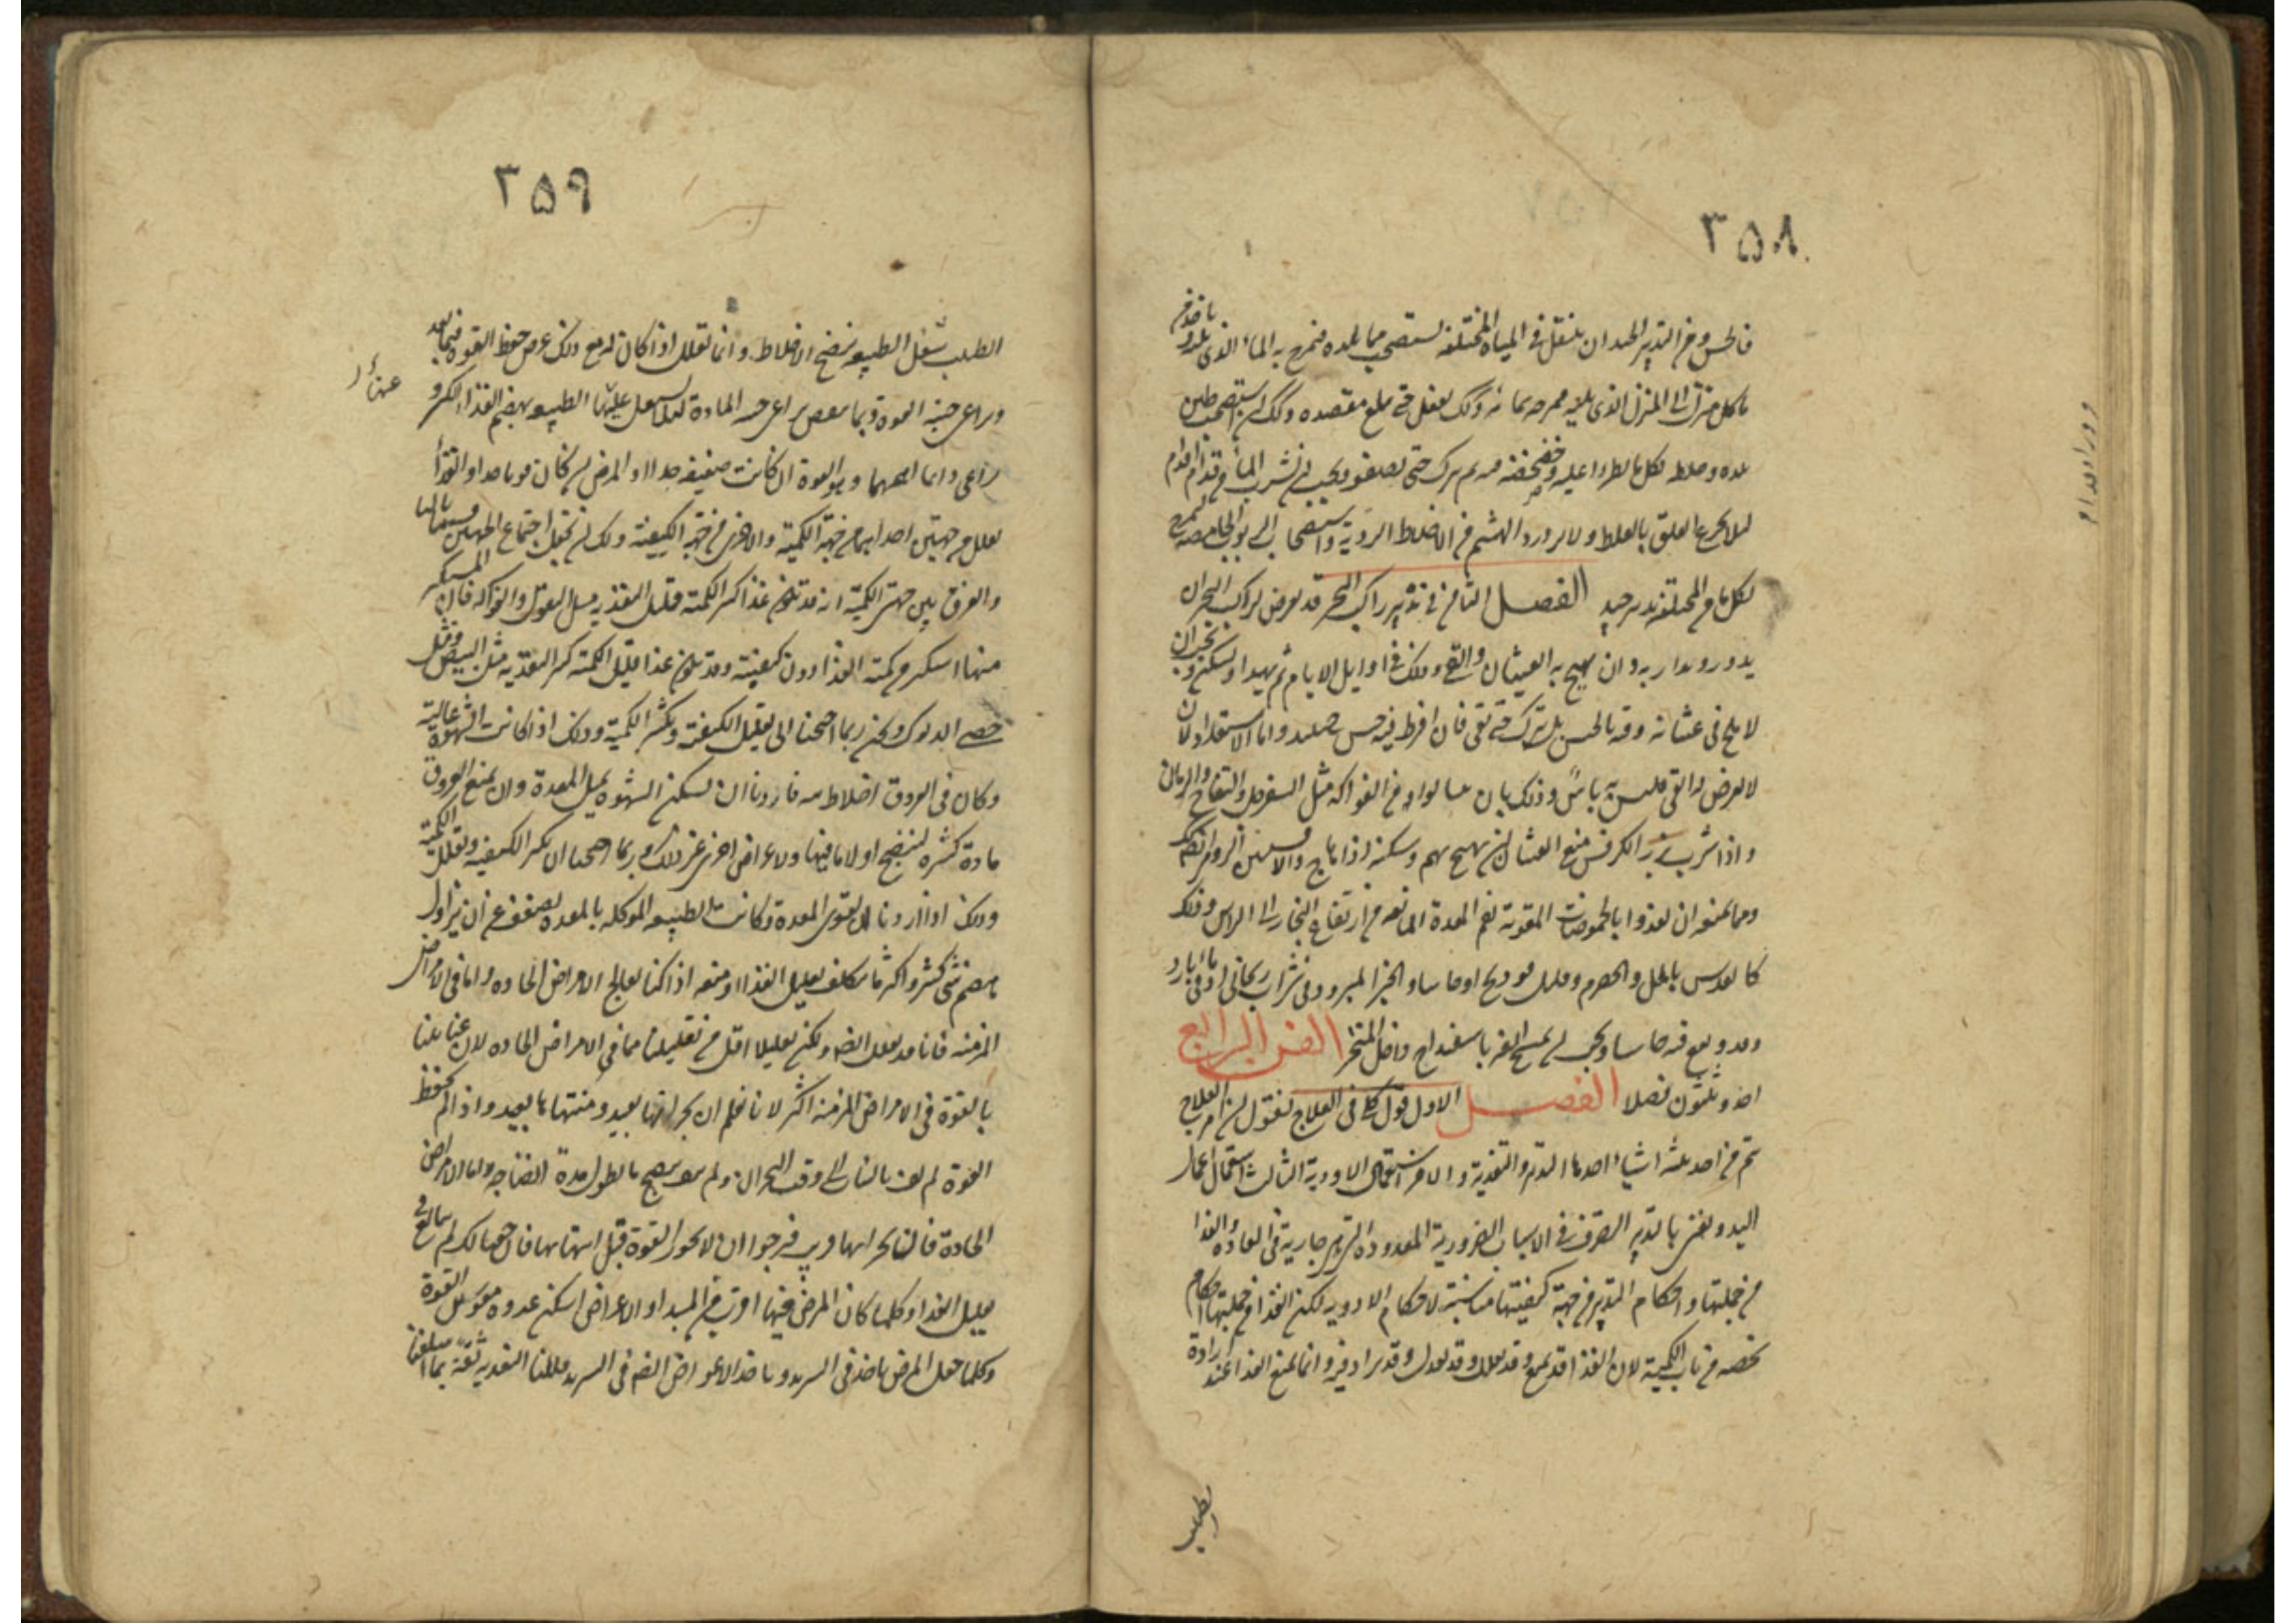 ٣٥٨
فالخس ومن التدبير الجيد ان ينتقل في المياه المختلفة مستصحب من ماء بلده فيمزج به الماء الذي يليه وياخذ من
ماء كل منزل الى المنزل الذي يليه فيمزجه بمائه وكذلك يفعل حتى يبلغ مقصده وكذلك ان استصحب طين
بلده وخلط بكل ما يطرأ عليه وخضخضه فيه ثم يترك حتى يصفو ويجب ان يشرب الماء من قدام فدام
لئلا يجرع العلق بالغلط ولا يزدرد الهشيم من الاخلاط الردية واستصحاب الربوب الحامضة لتمزج
بكل ماء من المختلفة تدبير جيد الفصل الثامن في تدبير راكب البحر قد يعرض لراكب البحر ان
يدور ويدار به وان يهيج به الغثيان والقي وذلك في اوايل الايام ثم يهدأ ويسكن ويجب ان
لا يلح في غثيانه وقيه بالحبس بل يترك حتى يقي فان افرط فيه حبس حينئذ واما الاستعداد لان
لا يعرض له القي فليس به باس وذلك بان يتناول من الفواكه مثل السفرجل والتفاح والرمان
واذا شرب بزر الكرفس منع الغثيان ان يهيج بهم وسكنه اذا هاج والافسنتين ايضا كذلك
ومما يمنعه ان يغذوا بالحموضات المقوية لفم المعدة المانعة من ارتفاع البخار الى الراس وذلك
كالعدس بالخل والحصرم وقليل فودنج او حاشا والخبز المبرود في شراب ريحاني او في ماء بارد
وقد وقع فيه حاشا ويجب ان يمسح انفه باسفيداج داخل المنخر الفن الرابع
احد وثلثون فصلا الفصل الاول قول كلي في العلاج نقول ان امر العلاج
يتم من احد ثلثة اشياء احدها التدبير والتغذية والاخر استعمال الادوية الثالث استعمال اعمال
اليد ونعني بالتدبير التصرف في الاسباب الضرورية المعدودة التي هي جارية في العادة والغذا
من جملتها واحكام التدبير من جهة كيفيتها مناسبة لاحكام الادوية لكن للغذا من جملتها احكام
تخصه من باب الكمية لان الغذا قد يمنع وقد يقلل وقد يعدل وقد يزاد فيه وانما يمنع الغذا عند ارادة
الطبيب
٣٥٩
الطبيب شغل الطبيعة بنضج الاخلاط وانما يقلل اذا كان له مع ذلك غرض حفظ القوة فبما يغذو
يراعي جنبة القوة وبما ينقص يراعي جنبة المادة لئلا تشتغل عنها الطبيعة بهضم الغذا الكثير و
يراعي دايما اهمهما وهو القوة ان كانت ضعيفة جدا او المرض ان كان قويا جدا والغذاء
يقلل من جهتين احداهما من جهة الكمية والاخرى من جهة الكيفية ولك ان تجعل اجتماع الجهتين قسما ثالثا
والفرق بين جهتي الكمية والكيفية انه قد يكون غذا كثير الكمية قليل التغذية مثل البقول والفواكه فان المستكثر
منها استكثر من كمية الغذا دون كيفيته وقد يكون غذا قليل الكمية كثير التغذية مثل البيض ومثل
خصي الديوك ونحن ربما احتجنا الى تقليل الكيفية وتكثير الكمية وذلك اذا كانت الشهوة غالبة
وكان في العروق اخلاط نية فاردنا ان نسكن الشهوة بملء المعدة وان نمنع العروق
مادة كثيرة لينضج اولا ما فيها ولاغراض اخرى غير ذلك وربما احتجنا الى تكثير الكيفية وتقليل الكمية
وذلك اذا اردنا ان نقوي المعدة وكانت الطبيعة الموكلة بالمعدة تضعف عن ان تزاول
هضم شي كثير واكثر ما نتكلف تقليل الغذا ومنعه اذا كنا نعالج الامراض الحادة واما في الامراض
المزمنة فانا قد نقلل ايضا ولكن تقليلا اقل من تقليلنا في الامراض الحادة لان عنايتنا
بالقوة في الامراض المزمنة اكثر لانا نعلم ان بحرانها بعيد ومنتهاها بعيد واذا لم تحفظ
القوة لم تف بالثبات الى وقت البحران ولم تف بنضج ما تطول مدة انضاجه واما الامراض
الحادة فان بحرانها قريب فنرجوا ان لا تخور القوة قبل انتهائها فان خفنا ذلك لم نبالغ في
تقليل الغذا وكلما كان المرض فيها اقرب من المبدا والاعراض اسكن غذوه مقوين للقوة
وكلما جعل المرض ياخذ في التزيد وياخذ الاعراض ايضا في التزيد قللنا التغذية ثقة بما اسلفنا